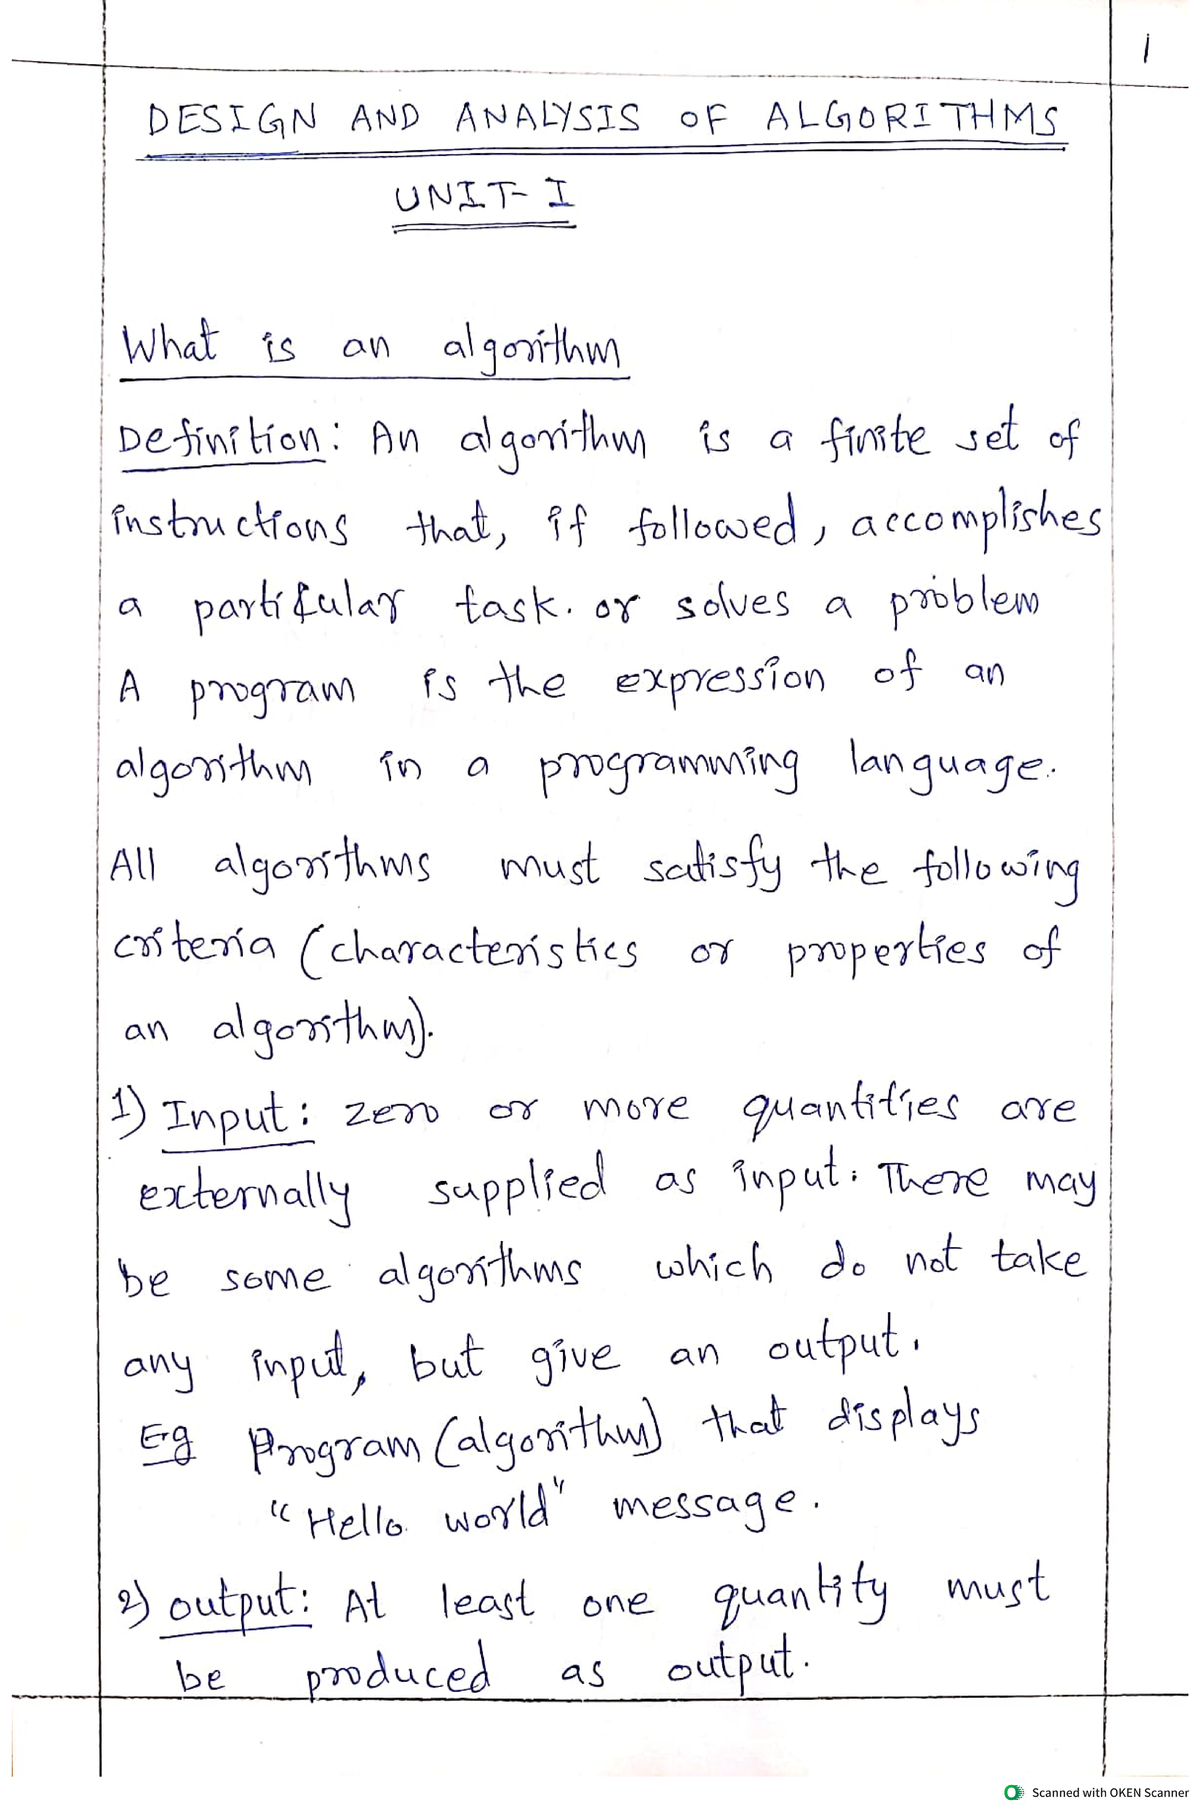 1
DESIGN AND ANALYSIS OF ALGORITHMS
UNIT-I
What is an algorithm
Definition: An algorithm is a finite set of
instructions that, if followed, accomplishes
a particular task. or solves a problem
A program is the expression of an
algorithm in a programming language.
All algorithms must satisfy the following
criteria (characteristics or properties of
an algorithm).
1) Input: zero or more quantities are
externally supplied as input. There may
be some algorithms which do not take
any input, but give an output.
Eg Program (algorithm) that displays
"Hello world" message.
2) output: At least one quantity must
be produced as output.
Scanned with OKEN Scanner